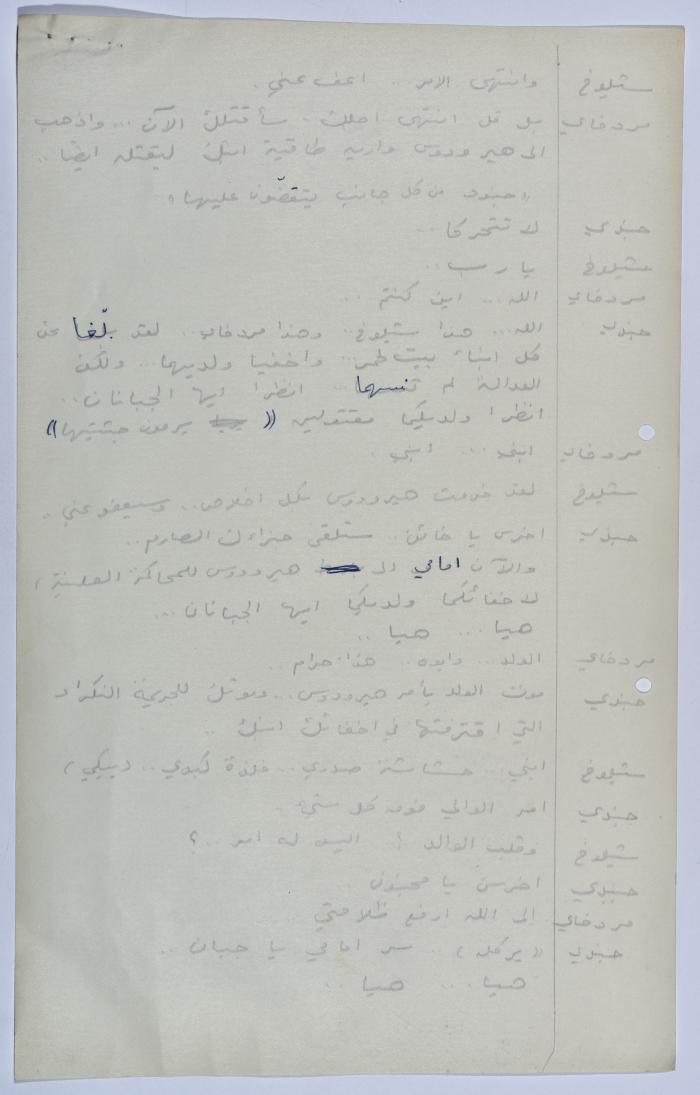 شيلوخ وانتهى الامر .. اعف عني .
مردخاي بل قل انتهى اجلك .. سأقتلك الآن ... واذهب
الى هيرودوس واريه طاقية ابنك ليقتله ايضا ..
« جنود من كل جانب ينقضّون عليها »
جندي لا تتحركا ...
شيلوخ يا رب ..
مردخاي الله ... اين كنتم ...
جندي الله ... هذا شيلوخ .. وهذا مردخاي .. لقد بلّغا عن
كل ابناء بيت لحم ... واخفيا ولديهما ... ولكن
العدالة لم تنسهما ... انظرا ايها الجبانان ..
انظرا ولديكما مقتولين (( يرمون جثتيهما ))
مردخاي ابني ... ابني .
شيلوخ لقد خدمت هيرودوس بكل اخلاص .. وسيعفو عني ..
جندي اخرس يا خائن .. ستلقى جزاءك الصارم ..
والآن امامي الى هيرودوس للمحاكمة العلنية ،
لاخفائكما ولديكما ايها الجبانان ...
هيا ... هيا ..
مردخاي الولد ... وابوه .. هذا حرام ..
جندي موت الولد بأمر هيرودوس .. وموتك للجريمة النكراء
التي اقترفتها في اخفائك ابنك ..
شيلوخ ابني ... حشاشة صدري .. فلذة كبدي .. ( يبكي )
جندي امر الوالي فوق كل شيء .
شيلوخ وقلب الوالد ؟ .. اليس له امر .. ؟
جندي اخرس يا مجنون .
مردخاي الى الله ارفع ظلامتي
جندي ( يركله ) .. سر امامي يا جبان ..
هيا ... هيا ..